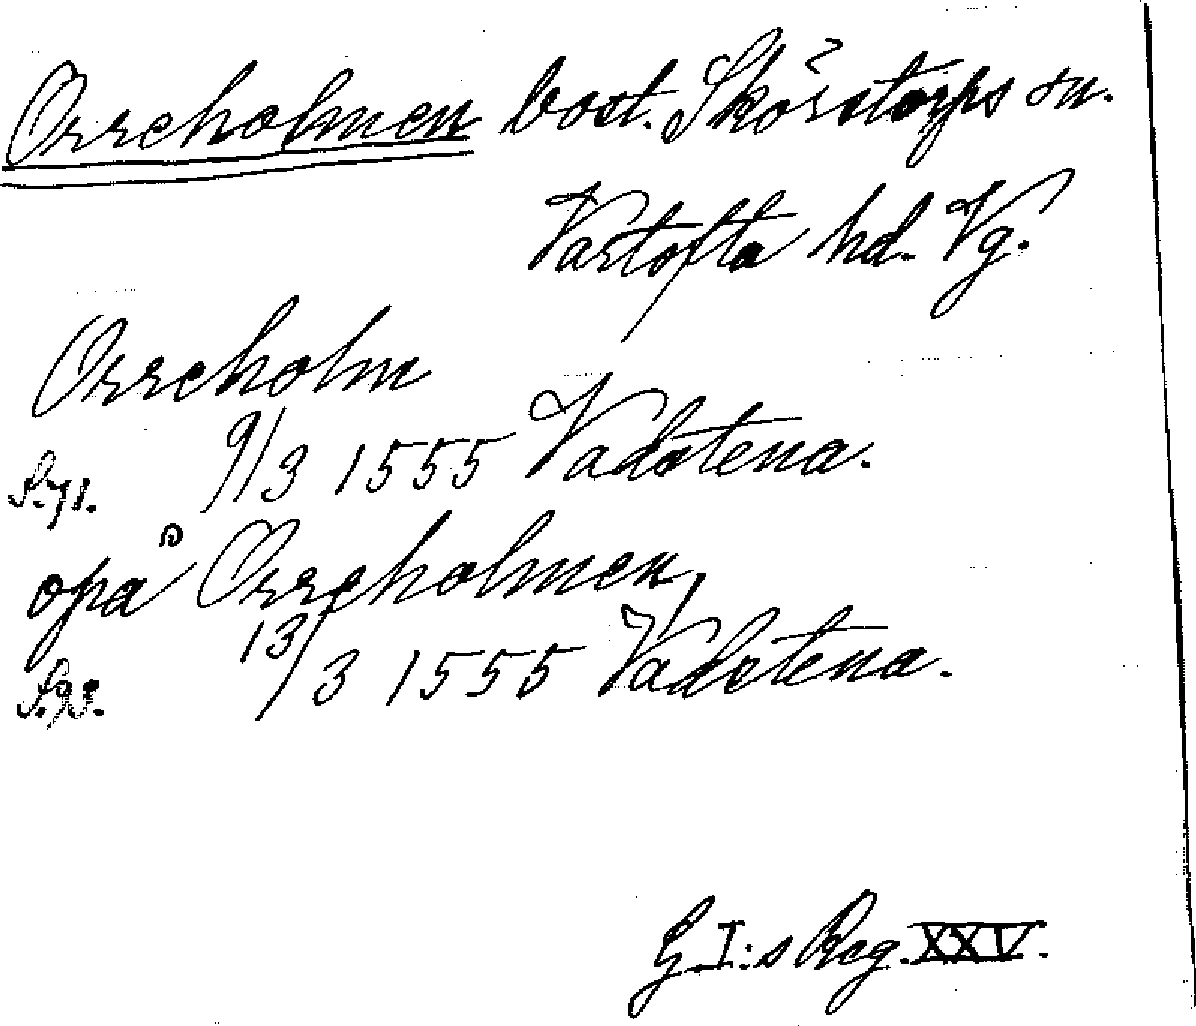 Orreholmen bost. Skörstorps sn.
Vartofta hd. Vg.
Orreholm
S. 71. 9/3 1555 Vadstena.
opå Orreholmen,
13/3 1555 Vadstena.
G I:s Reg. XXV.